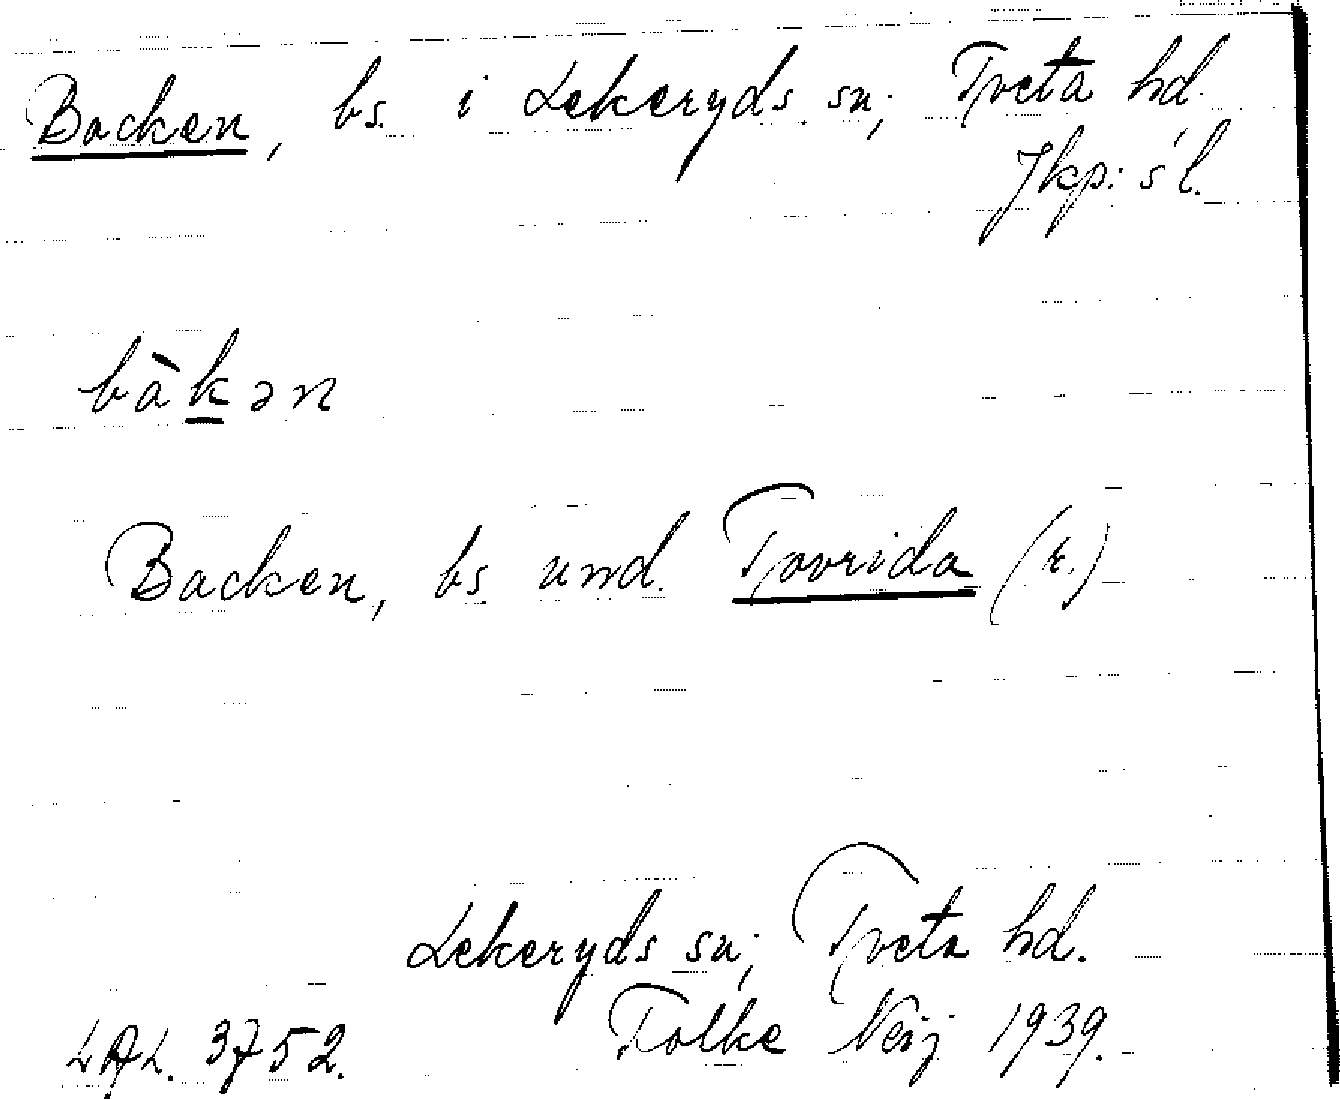 Backen, bs. i Lekeryds sn; Tveta hd.
Jkp:s l.
bàkən
Backen, bs. und. Tovrida (r.)
Lekeryds sn; Tveta hd.
LAL. 3752. Folke Neij 1939.